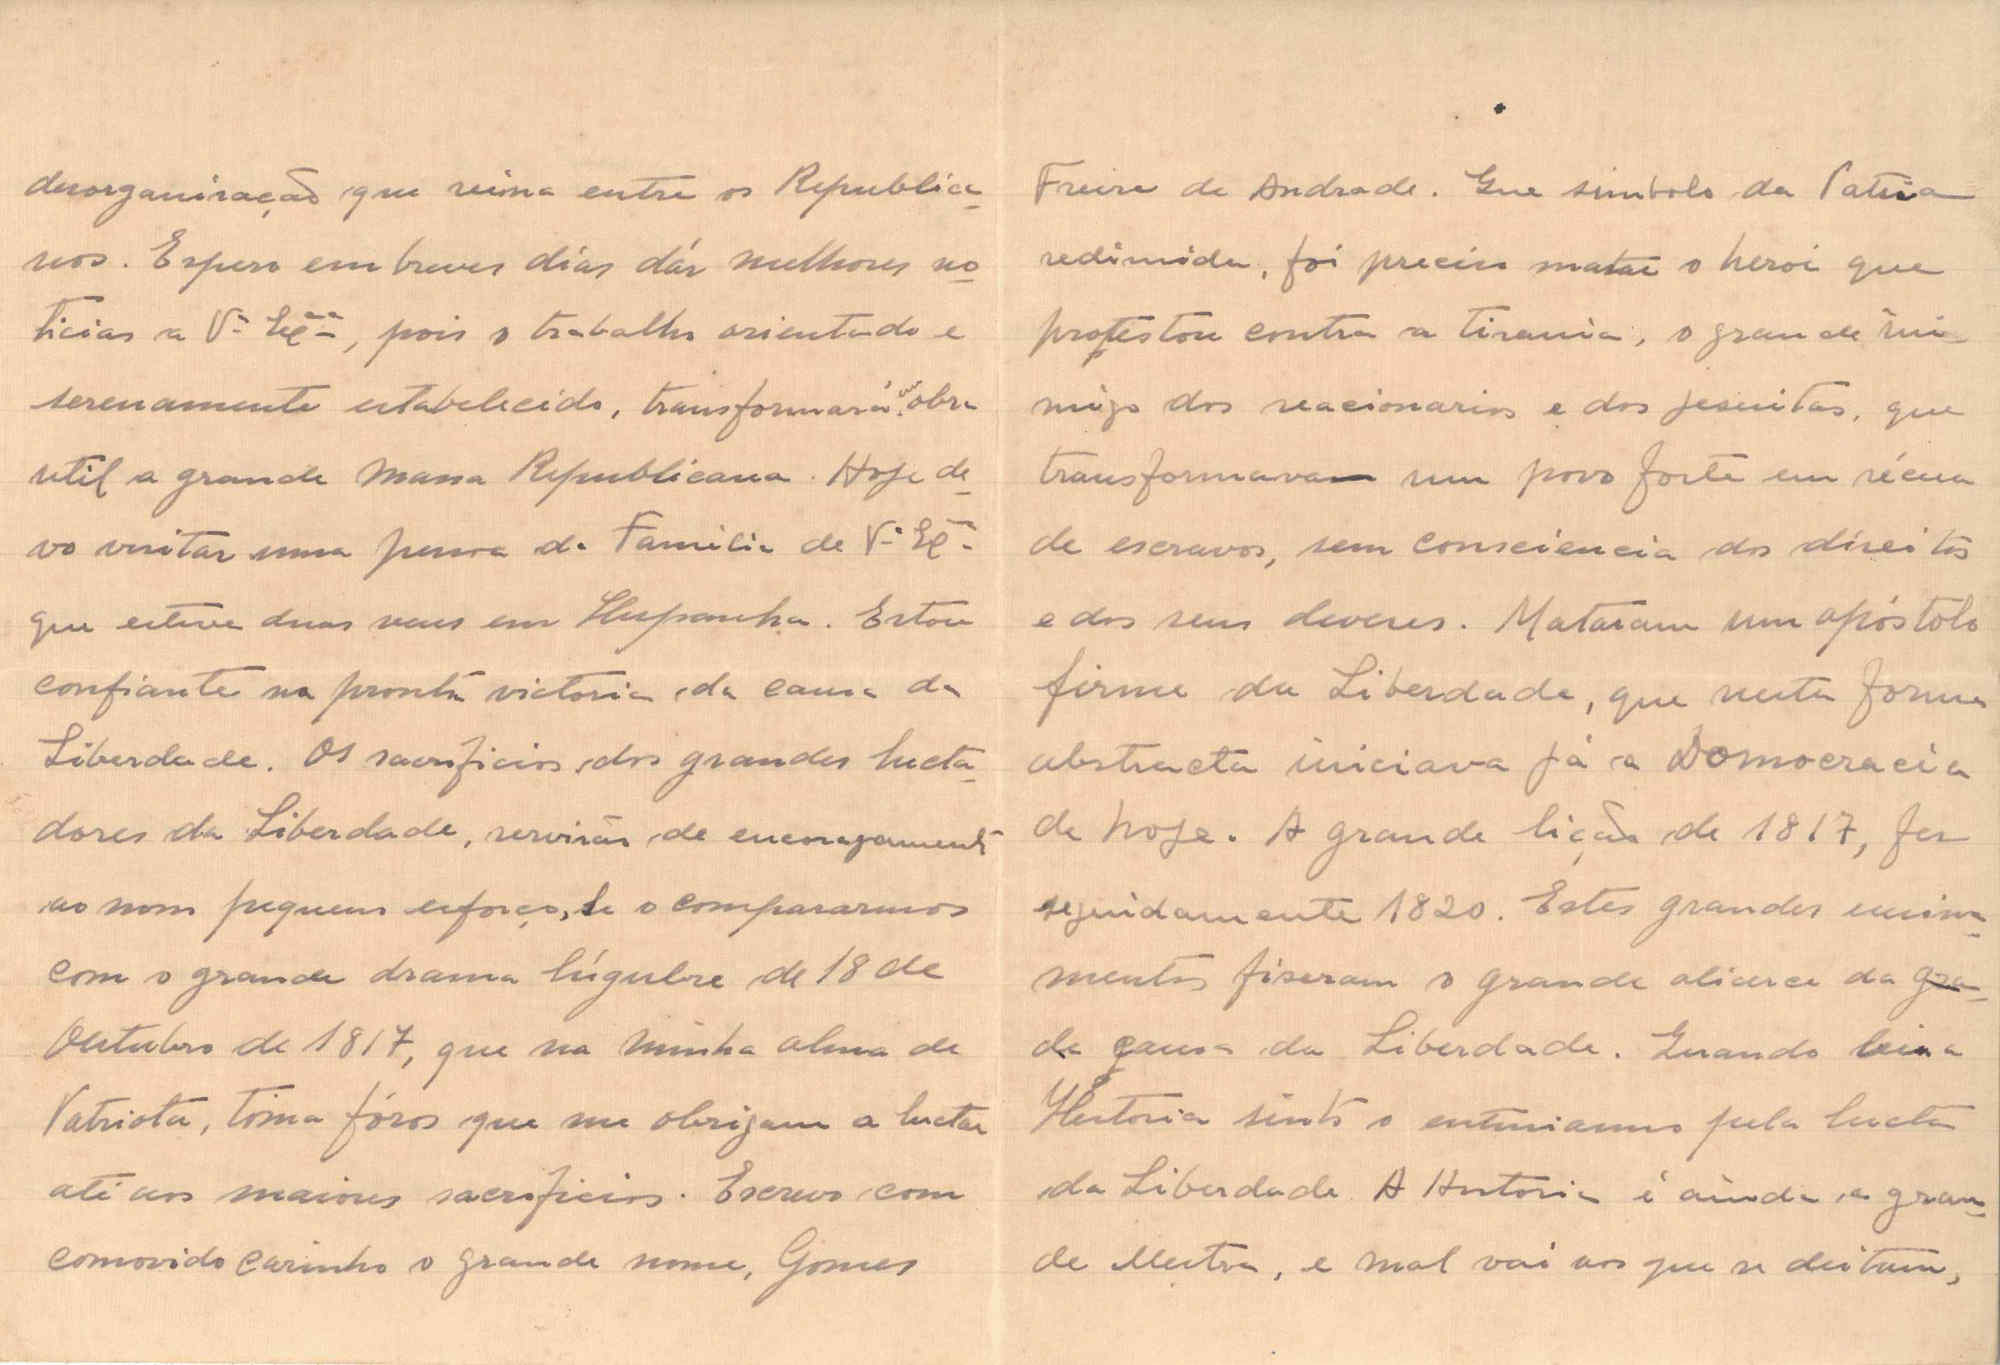 desorganisação que reina entre os Republica-
nos. Espero em breves dias dár melhores no-
ticias a Vª Exª, pois o trabalho orientado e
serenamente estabelecido, transformará em obra
util a grande massa Republicana. Hoje de-
vo visitar uma pessoa da Familia de Vª Exª
que esteve duas vezes em Hespanha. Estou
confiante na pronta victoria da causa da
Liberdade. Os sacrificios dos grandes lucta-
dores da Liberdade, servirão de encorajamento
ao nosso pequeno esforço, se o compararmos
com o grande drama lúgubre de 18 de
Outubro de 1817, que na minha alma de
Patriota, toma fóros que me obrigam a luctar
até aos maiores sacrificios. Escrevo com
comovido carinho o grande nome, Gomes
Freire de Andrade. Que simbolo da Patria
redimida, foi preciso matar o heroi que
protestou contra a tirania, o grande ini-
migo dos reacionarios e dos jesuitas, que
transformavam um povo forte em récua
de escravos, sem consciencia dos direitos
e dos seus deveres. Mataram um apóstolo
firme da Liberdade, que nesta forma
abstracta iniciava já a Domocracia
de hoje. A grande lição de 1817, fez
seguidamente 1820. Estes grandes ensina-
mentos fiseram o grande alicerce da gran-
de causa da Liberdade. Quando leio a
Historia sinto o entusiasmo pela lucta
da Liberdade. A Historia é ainda a gran-
de Mestra, e mal vai aos que se deitam,